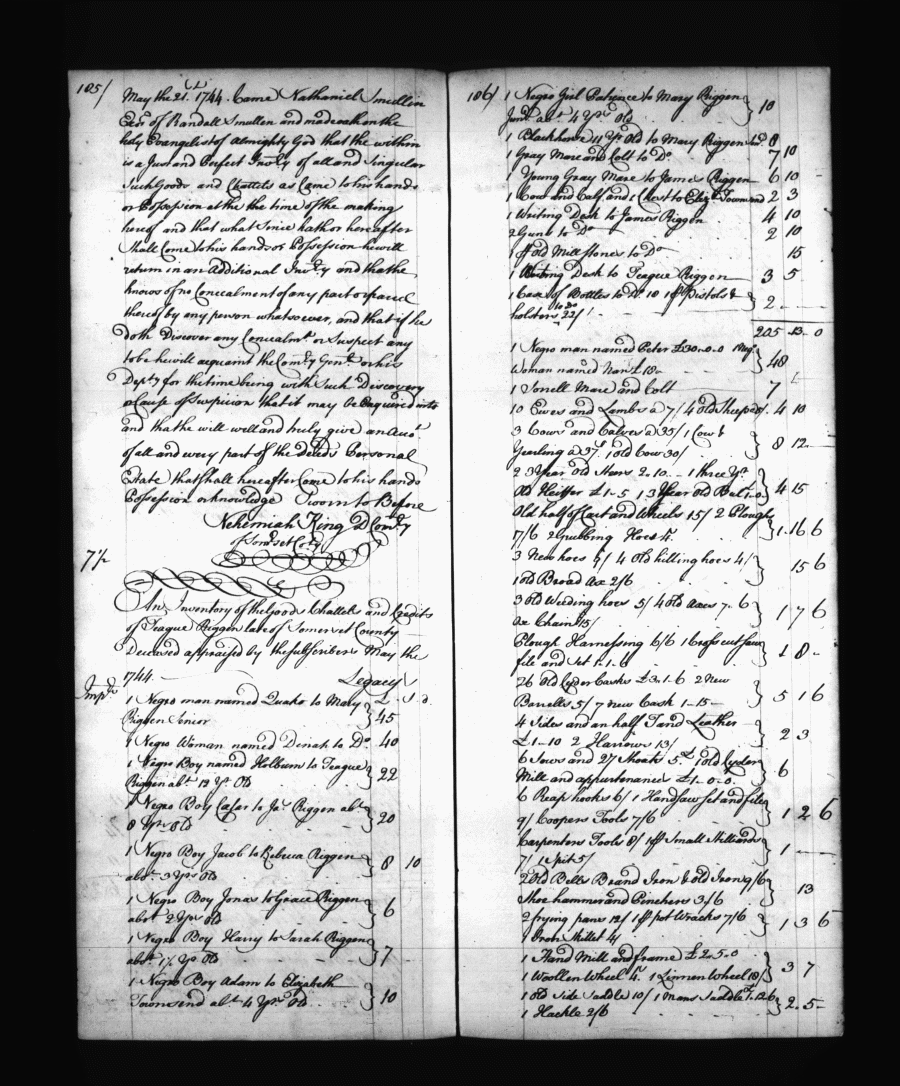 105/
May the 21. 1744. Came Nathaniel Smullin
Exr of Randall Smullen and made oath on the
holy Evangelist of Almighty God that the within
is a Just and Perfect Invty of all and Singular
Such Goods and Chattels as Came to his hands
or Possession at the the time of the making
hereof and that what Since hath or hereafter
Shall Come to his hands or Possession he will
return in an Additional Invty and that he
knows of no Concealment of any part or parcel
thereof by any person whatsoever, and that if he
doth Discover any Concealmt or Suspect any
to be he will acquaint the Comry Genl or his
Depty for the time being with Such Discovery
or Cause of Suspicion that it may be Enquired into
and that he will well and truly give an Acct
of all and every part of the deceds Personal
Estate that shall hereafter Come to his hands
Possession or knowledge Sworn to Before
Nehemiah King D Comry
of Somrset Coty
7/2
An Inventory of the Goods Chattels and Credits
of Teague Riggen late of Somerset County
Deceased appraised by the subscribers May the
1744 Legacys
Imps £ S d
1 Negro man named Quako to Mary
Riggen Senior } 45
1 Negro Woman named Dinah to Do 40
1 Negro Boy named Holburn to Teague
Riggen abt 12 Yrs Old } 22
1 Negro Boy Cæser to Jas Riggen abt
8 Yrs Old } 20
1 Negro Boy Jacob to Rebecca Riggen
abt 3 Yrs Old } 8 10
1 Negro Boy Jonas to Grace Riggen
abt 2 Yrs Old } 6
1 Negro Boy Harry to Sarah Riggen
abt 1½ Yr Old } 7
1 Negro Boy Adam to Elizabeth
Townsend abt 4 Yrs Old } 10
106/
1 Negro Girl Patience to Mary Riggen
Junr abt 4 Yrs Old } 10
1 Black horse 11 Yrs Old to Mary Riggen Senr 8
1 Gray Mare and Colt to Do 7 10
1 Young Gray Mare to James Riggen 6 10
1 Cow and Calf and 1 Chest to Eliz Townsend 2 3
1 Writing Desk to James Riggen 4 10
2 Guns to Do 2 10
1 pr Old Mill stones to Do 15
1 Writing Desk to Teague Riggen 3 5
1 Case of Bottles to Do 10 1 pr Pistols &
holsters to Do 22/ } 2
205 13 0
1 Negro man named Peter £30-0-0 1 Neg
Woman named Nan £18 } 48
1 Sorrell Mare and Colt 7
10 Ewes and Lambs a 7/ 4 Old Sheep 4 10
3 Cows and Calves a 35/ 1 Cow &
Yearling a 37 1 old Cow 30/ } 8 12
2 3 Year Old Steers 2-10 1 three Yr
Old Heiffer £1-5 1 3 Year Old Bul 1-0 } 4 15
Old half of Cart and Wheels 15/ 2 Plough
17/6 2 Grubbing Hoes 4 } 1 16 6
3 New hoes 9/ 4 Old hilling hoes 4/
1 old Broad Axe 2/6 } 15 6
3 Old Weeding hoes 5/ 4 Old Axes 7-6
Ox Chain 15/ } 1 7 6
Plough Harnessing 6/6 1 Cross cut saw
file and set 1-1-6 } 1 8
26 Old Cyder Casks £3-1-6 2 New
Barrells 5/ 7 new Cask 1-15 } 5 1 6
4 Sides and an half Tand Leather
£1-10 2 Harrows 13/ } 2 3
6 Sows and 27 Shoats 5£ 1 old Cyder
Mill and appurtenance £1-0-0 } 6
6 Reap hooks 6/ 1 Hand saw set and file
9/ Coopers Tools 7/6 } 1 2 6
Carpenters Tools 8/ 1 pr Small Stilliards
7/ 1 Spit 5/ } 1
2 Old Bells Brand Iron & old Iron 9/6
Shoe hammer and Pinchers 3/6 } 13
2 frying pans 12/ 1 pr pot Wracks 7/6
1 Iron Skillet 4/ } 1 3 6
1 Hand Mill and frame £2-5-0
1 Woollen Wheel 4 1 Linnen Wheel 18/ } 3 7
1 Old Side Saddle 10/ 1 Mans Saddle £1.12.6
1 Hackle 2/6 } 2 5